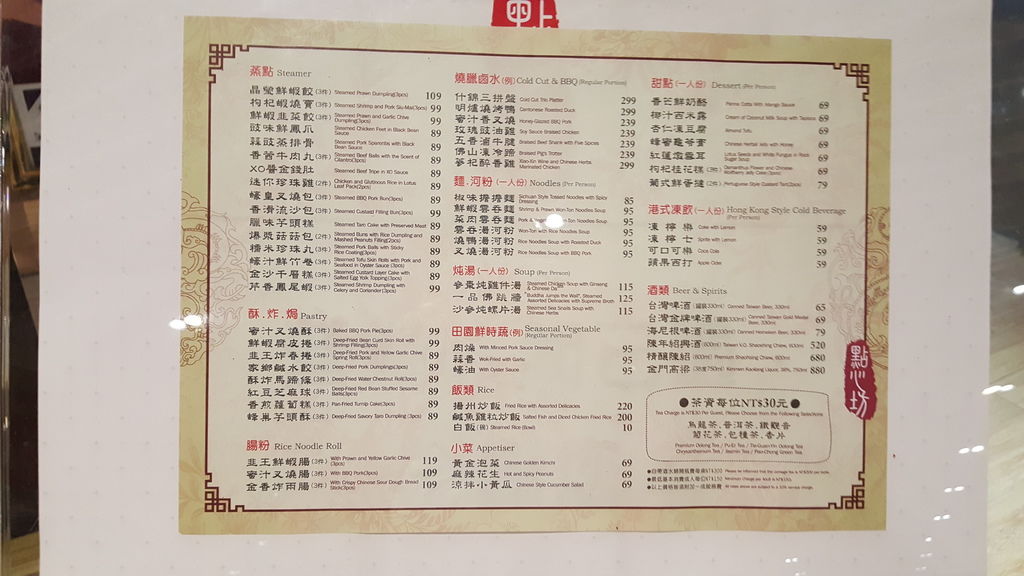 蒸點 Steamer
晶瑩鮮蝦餃(3件) Steamed Prawn Dumpling(3pcs) 109
枸杞蝦燒賣(3件) Steamed Shrimp and Pork Siu-Mai(3pcs) 99
鮮蝦韭菜餃(3件) Steamed Prawn and Garlic Chive Dumpling(3pcs) 99
豉味鮮鳳爪 Steamed Chicken Feet in Black Bean Sauce 89
蒜豉蒸排骨 Steamed Pork Spareribs with Black Bean Sauce 89
香茜牛肉丸(3件) Steamed Beef Balls with the Scent of Cilantro(3pcs) 89
XO醬金錢肚 Steamed Beef Tripe in XO Sauce 89
迷你珍珠雞(2件) Chicken and Glutinous Rice in Lotus Leaf Pack(2pcs) 89
蠔皇叉燒包(3件) Steamed BBQ Pork Bun(3pcs) 89
香滑流沙包(3件) Steamed Custard Filling Bun(3pcs) 99
臘味芋頭糕 Steamed Taro Cake with Preserved Meat 89
爆漿菇菇包(2件) Steamed Buns with Rice Dumpling and Mashed Peanuts Filling(2pcs) 89
糯米珍珠丸(3件) Steamed Pork Balls with Sticky Rice Coating(3pcs) 89
蠔汁鮮竹卷(3件) Steamed Tofu Skin Rolls with Pork and Seafood in Oyster Sauce (3pcs) 89
金沙千層糕(3件) Steamed Custard Layer Cake with Salted Egg Yolk Topping(3pcs) 89
芹香鳳尾蝦(3件) Steamed Shrimp Dumpling with Celery and Coriander(3pcs) 89
酥.炸.焗 Pastry
蜜汁叉燒酥(3件) Baked BBQ Pork Pie(3pcs) 99
鮮蝦腐皮捲(3件) Deep-Fried Bean Curd Skin Roll with Shrimp Filling(3pcs) 99
韭王炸春捲(3件) Deep-Fried Pork and Yellow Garlic Chive Spring Roll(3pcs) 89
家鄉鹹水餃(3件) Deep-Fried Pork Dumpling(3pcs) 89
酥炸馬蹄條(3件) Deep-Fried Water Chestnut Roll(3pcs) 89
紅豆芝麻球(3件) Deep-Fried Red Bean Stuffed Sesame Balls(3pcs) 89
香煎蘿蔔糕(3件) Pan-Fried Turnip Cake(3pcs) 89
蜂巢芋頭酥(3件) Deep-Fried Savory Taro Dumpling (3pcs) 89
腸粉 Rice Noodle Roll
韭王鮮蝦腸(3件) With Prawn and Yellow Garlic Chive (3pcs) 119
蜜汁叉燒腸(3件) With BBQ Pork(3pcs) 109
金香炸兩腸(3件) With Crispy Chinese Sour Dough Bread Stick(3pcs) 109
燒臘鹵水(例) Cold Cut & BBQ (Regular Portion)
什錦三拼盤 Cold Cut Trio Platter 299
明爐燒烤鴨 Cantonese Roasted Duck 299
蜜汁香叉燒 Honey-Glazed BBQ Pork 239
玫瑰豉油雞 Soy Sauce Braised Chicken 239
五香滷牛腱 Braised Beef Shank with Five Spices 239
佛山凍冷蹄 Braised Pig's Trotter 239
蔘杞醉香雞 Xiao-Xin Wine and Chinese Herbs Marinated Chicken 299
麵.河粉(一人份) Noodles (Per Person)
椒味擔擔麵 Sichuan Style Tossed Noodles with Spicy Dressing 85
鮮蝦雲吞麵 Shrimp & Prawn Won-Ton Noodles Soup 95
菜肉雲吞麵 Pork & Vegetable Won-Ton Noodles Soup 95
雲吞湯河粉 Won-Ton with Rice Noodles Soup 95
燒鴨湯河粉 Rice Noodles Soup with Roasted Duck 95
叉燒湯河粉 Rice Noodles Soup with BBQ Pork 95
炖湯(一人份) Soup (Per Person)
參棗炖雞件湯 Steamed Chicken Soup with Ginseng & Chinese Date 115
一品佛跳牆 "Buddha Jumps the Wall", Steamed Assorted Delicacies with Supreme Broth 125
沙參炖螺片湯 Steamed Sea Snails Soup with Chinese Herbs 115
田園鮮時蔬(例) Seasonal Vegetable (Regular Portion)
肉燥 With Minced Pork Sauce Dressing 95
蒜香 Wok-Fried with Garlic 95
蠔油 With Oyster Sauce 95
飯類 Rice
揚州炒飯 Fried Rice with Assorted Delicacies 220
鹹魚雞粒炒飯 Salted Fish and Diced Chicken Fried Rice 200
白飯(碗) Steamed Rice(Bowl) 10
小菜 Appetiser
黃金泡菜 Chinese Golden Kimchi 69
麻辣花生 Hot and Spicy Peanuts 69
涼拌小黃瓜 Chinese Style Cucumber Salad 69
甜點(一人份) Dessert (Per Person)
香芒鮮奶酪 Panna Cotta With Mango Sauce 69
椰汁西米露 Cream of Coconut Milk Soup with Tapioca 69
杏仁凍豆腐 Almond Tofu 69
蜂蜜龜苓膏 Chinese Herbal Jelly with Honey 69
紅蓮燉雪耳 Lotus Seeds and White Fungus in Rock Sugar Soup 69
枸杞桂花糕(3件) Osmanthus Flower and Chinese Wolfberry Jelly Cake (3pcs) 69
葡式鮮蛋撻(2件) Portuguese Style Custard Tart(2pcs) 79
港式凍飲(一人份) Hong Kong Style Cold Beverage (Per Person)
凍檸樂 Coke with Lemon 59
凍檸七 Sprite with Lemon 59
可口可樂 Coca Cola 59
蘋果西打 Apple Cider 59
酒類 Beer & Spirits
台灣啤酒(罐裝330ml) Canned Taiwan Beer, 330ml 65
台灣金牌啤酒(罐裝330ml) Canned Taiwan Gold Medal Beer, 330ml 69
海尼根啤酒(罐裝330ml) Canned Heineken Beer, 330ml 79
陳年紹興酒(600ml) Taiwan V.O. Shaohsing Chiew, 600ml 520
精釀陳紹(600ml) Premium Shaohsing Chiew, 600ml 680
金門高梁(38度750ml) Kinmen Kaoliang Liquor, 38%, 750ml 880
●茶資每位NT$30元●
Tea Charge is NT$30 Per Guest, Please Choose from the Following Selections
烏龍茶.普洱茶.鐵觀音
菊花茶.包種茶.香片
Premium Oolong Tea / Pu-Er Tea / Tie-Guan-Yin Oolong Tea
Chrysanthemum Tea / Jasmin Tea / Pao-Chong Green Tea
●自帶酒水酌收服務費每瓶NT$300
●最低基本消費成人每位NT$150 Minimum Charge per Adult is NT$150.
●以上價格皆須附加一成服務費 All items above are subject to a 10% service charge.
點心坊